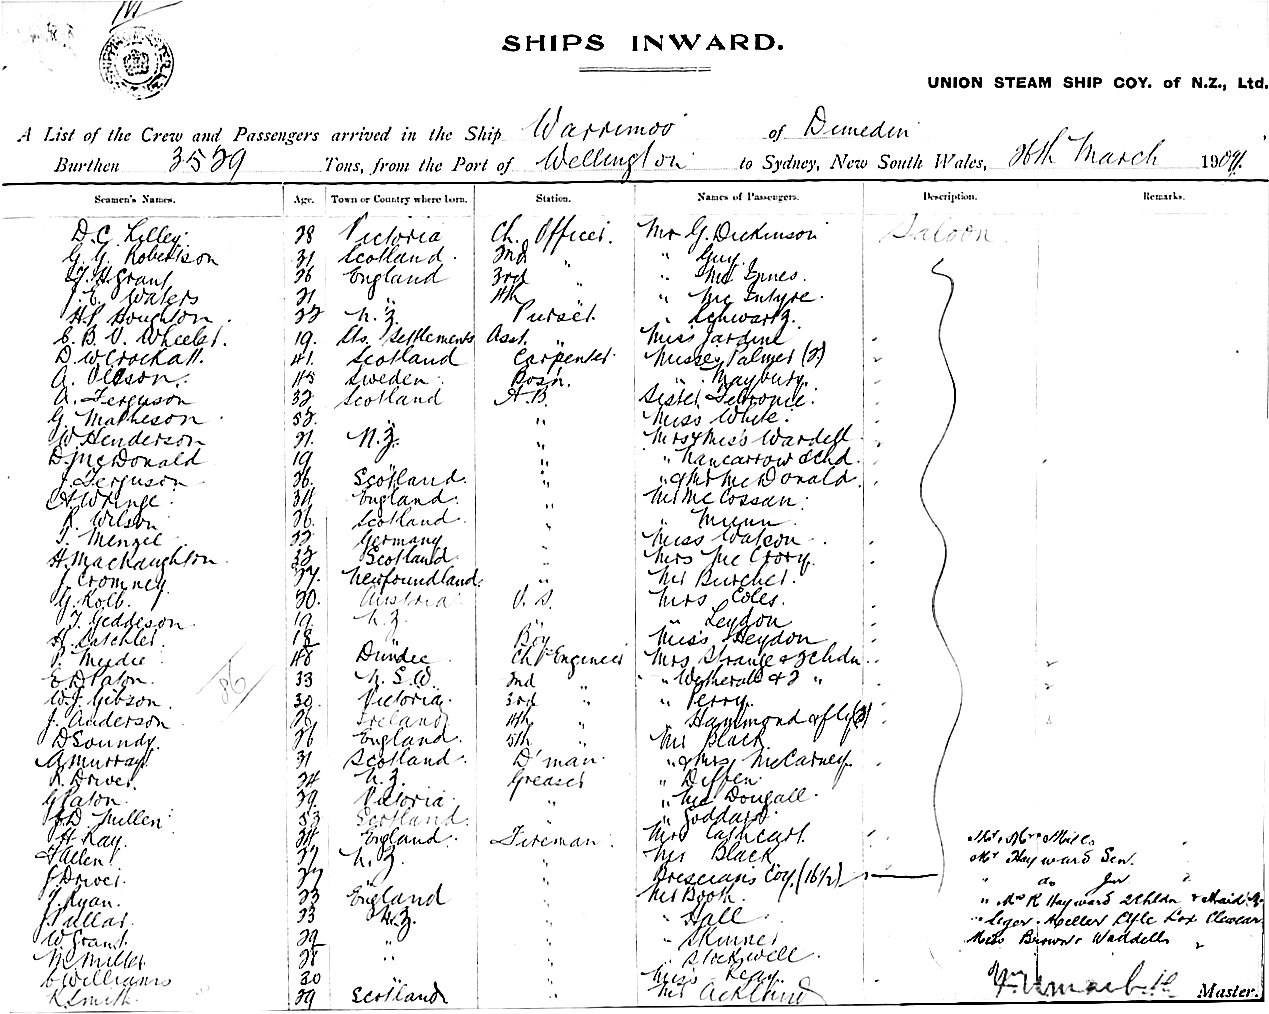 SHIPS INWARD.
UNION STEAM SHIP COY. of N.Z., Ltd.
A List of the Crew and Passengers arrived in the Ship Warrimoo of Dunedin
Burthen 3529 Tons, from the Port of Wellington to Sydney, New South Wales, 26th March 190
Seamen's Names. Age. Town or Country where born. Station. Names of Passengers. Description. Remarks.
D.C. Lilley 28 Victoria Ch. Officer. Mr G. Dickinson Saloon
G. G. Robertson 31 Scotland. 2nd " " Guy.
Grant 26 England 3rd " " Innes.
J. E. Waters 21 " 4th " Mc Intyre.
Houghton 22 N.Z. Purser. " Schwartz.
E. B. V. Wheeler. 19. Sts. Settlements Asst. " Miss Jardine
D. W Crockatt. 41. Scotland Carpenter Misses Palmer (2)
A. Olsson. 45 Sweden. Bosn. " Maybury.
A. Ferguson 32 Scotland A.B. Sister
G. Matheson 52. " " Miss White.
W Henderson 21. N.Z. " Mrs & Miss Wardell
D. McDonald 19 " " " Nancarrow & Chd.
J. Ferguson 26. Scotland. " " & Mr McDonald.
34 England. " Mr McCossan.
R. Wilson 26. Scotland. " " Munn.
T. Menzel 22 Germany " Miss Watson
H. MacNaughton. 32 Scotland " Mrs McCrory.
J. Cromney 27. Newfoundland. " Mr Burcher.
G. Kolb. 20. Austria O.S. Mrs Coles.
T. Geddeson. 19. N.Z. " " Leydon
H. Latchler. 18 " Boy Miss Heydon
P. Mudie 48 Dundee Chf Engineer Mrs Strange & 2 Chdn.
E. D Paton. 33 N.S.W. 2nd " Wetherall & 2 "
W. J. Gibson. 30. Victoria. 3rd " " Perry.
J. Anderson 26 Ireland 4th " " Hammond
D Soundy. 26 England 5th " Mr Black
A. Murray 31 Scotland. D'man. " & Mrs McCarney.
R. Driver. 24 N.Z. Greaser "
G Paton. 29 Victoria. " " McDougall.
J. D Millen 53 Scotland. " " Goddard.
H. Kay. 24 England. Fireman. Mrs Cathcart
Allen 27 N.Z. " Mr Black
J. Driver. 27 " " Brescians Coy. (16½)
Ryan. 23 England " Mr Booth.
J. Pullar. 23 N.Z. " " Hall
W Grant 22 " " " Skinner
Miller 28 " " " Stockwell
Williams 20 " " Miss Reay.
R. Smith. 29 Scotland " Mr Ackland
86
Mr & Mrs Mills
Mr Hayward Sen.
" do Jnr
" Mrs R Hayward 2 Chldn & Maid
" Seger. Meller Lyle Fox
Miss Brown & Waddell
Master.